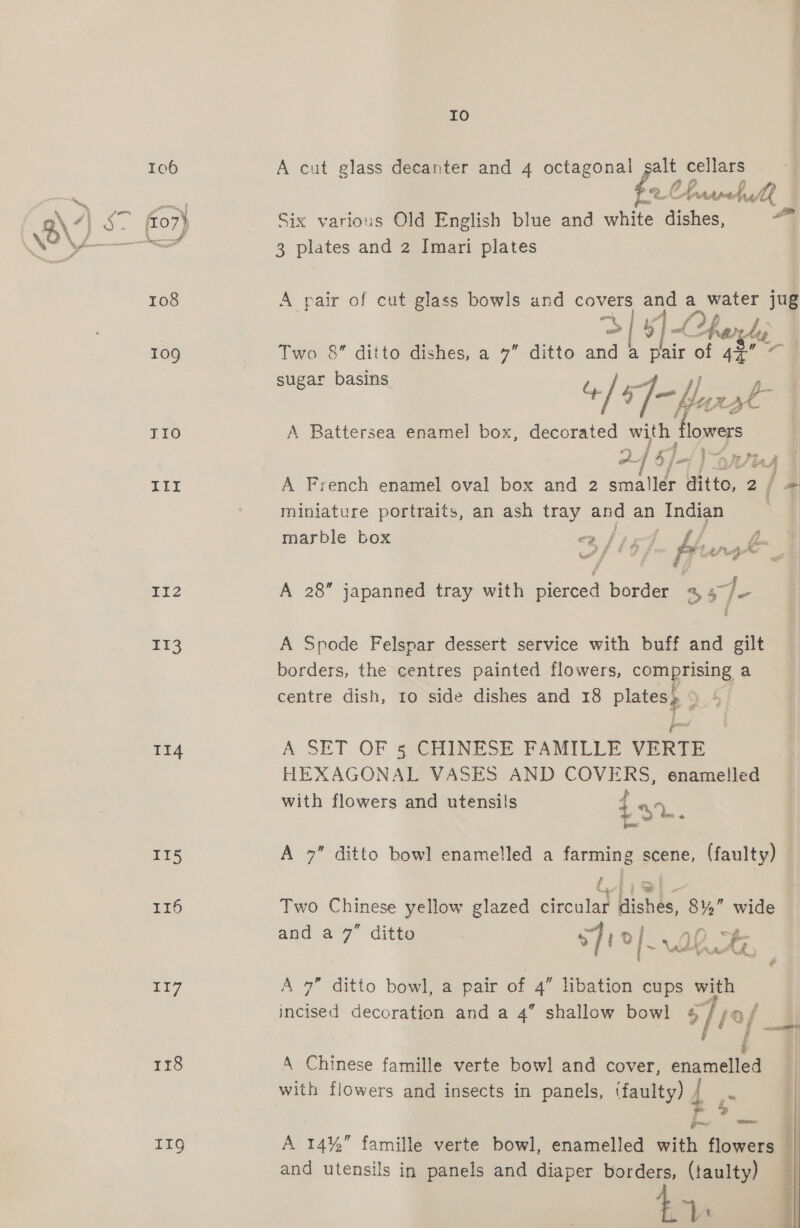 10
106 A cut glass decanter and 4 octagonal salt cellars
£2 Churchill
107) Six various Old English blue and white dishes,
3 plates and 2 Imari plates
108 A pair of cut glass bowls and covers and a water jug
109 Two 8" ditto dishes, a 7" ditto and a pair of 4¾"
sugar basins
4/5/- Hurst
110 A Battersea enamel box, decorated with flowers
2/5/-
111 A French enamel oval box and 2 smaller ditto, 2
miniature portraits, an ash tray and an Indian
marble box
Hurst
112 A 28" japanned tray with pierced border
113 A Spode Felspar dessert service with buff and gilt
borders, the centres painted flowers, comprising a
centre dish, 10 side dishes and 18 plates
114 A SET OF 5 CHINESE FAMILLE VERTE
HEXAGONAL VASES AND COVERS, enamelled
with flowers and utensils
115 A 7" ditto bowl enamelled a farming scene, (faulty)
116 Two Chinese yellow glazed circular dishes, 8½" wide
and a 7" ditto
117 A 7" ditto bowl, a pair of 4" libation cups with
incised decoration and a 4" shallow bowl
118 A Chinese famille verte bowl and cover, enamelled
with flowers and insects in panels, (faulty)
119 A 14½" famille verte bowl, enamelled with flowers
and utensils in panels and diaper borders, (faulty)